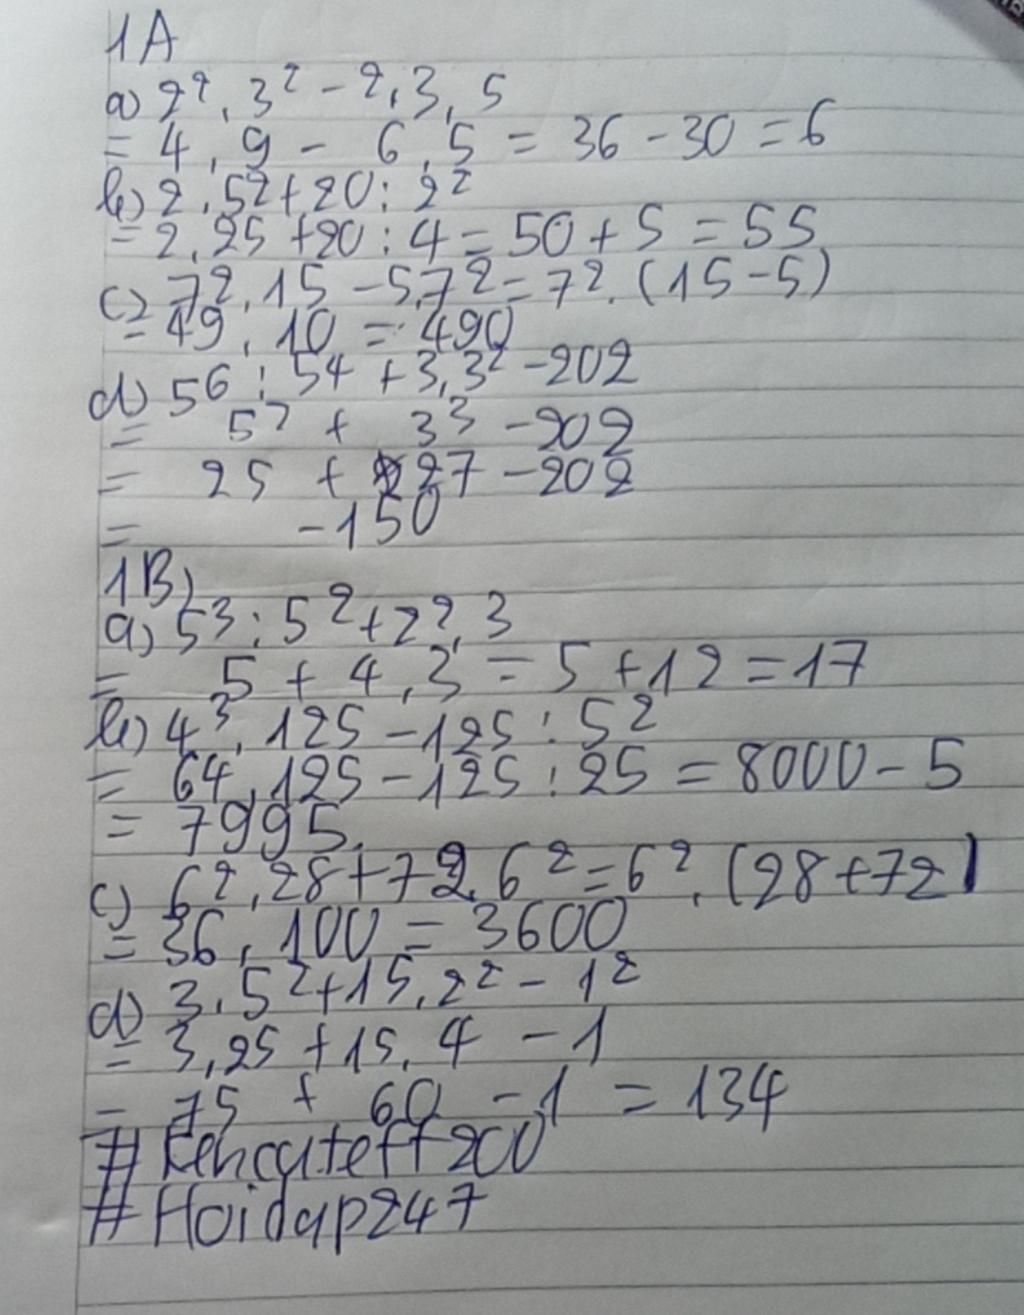 1A
a) 2². 3² - 2.3.5
= 4 . 9 - 6 . 5 = 36 - 30 = 6
b) 2 . 5² + 20 : 2²
= 2.25 + 20 : 4 = 50 + 5 = 55
c) 7².15 - 5.7² = 7². (15 - 5)
= 49 . 10 = 490
d) 5⁶ : 5⁴ + 3.3² - 202
= 5² + 3³ - 202
= 25 + 27 - 202
= -150
1B)
a) 5³ : 5² + 2². 3
= 5 + 4 . 3 = 5 + 12 = 17
b) 4³. 125 - 125 : 5²
= 64 . 125 - 125 : 25 = 8000 - 5
= 7995.
c) 6².28 + 72.6² = 6². (28 + 72)
= 36 . 100 = 3600
d) 3.5² + 15.2² - 1²
= 3.25 + 15. 4 - 1
= 75 + 60 - 1 = 134
#Hoidap247